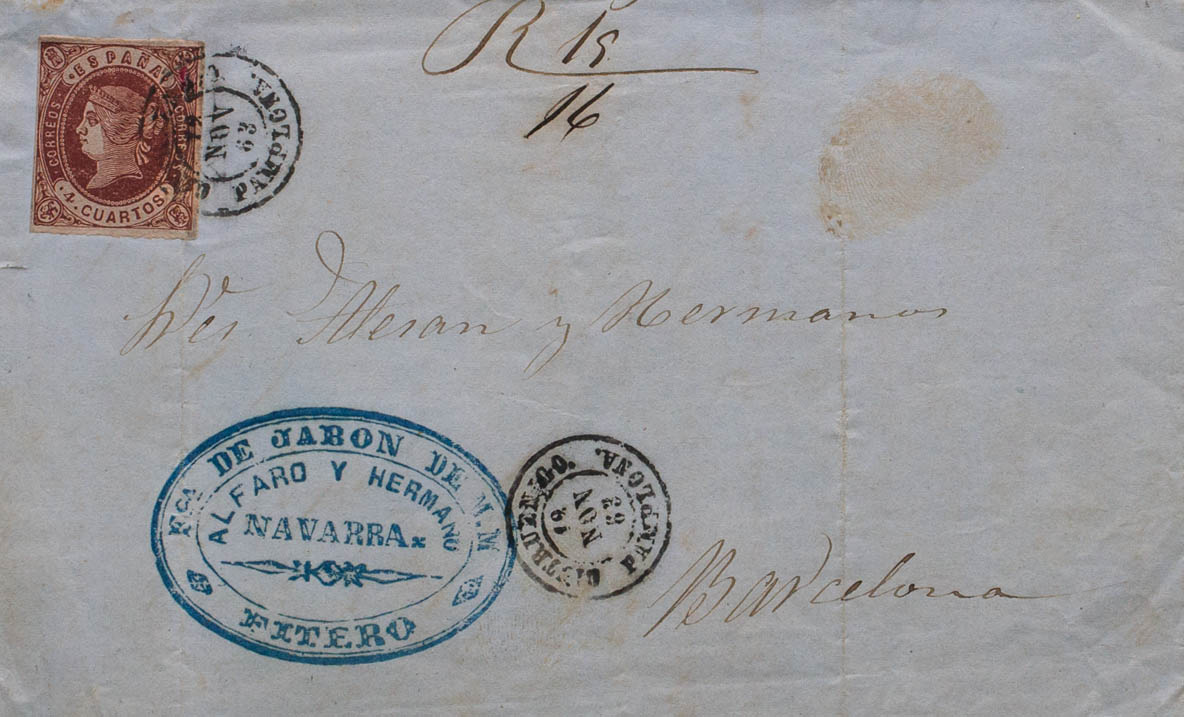 R 1s
16
CORREOS
ESPAÑA
CORREOS
4. CUARTOS
NOV
29
PAMPLONA.
Hermanos
y
Fca. DE JABON DE M.M
ALFARO Y HERMANO
NAVARRA
FITERO
CINTRUENIGO.
19
NOV
29
PAMPLONA.
Barcelona